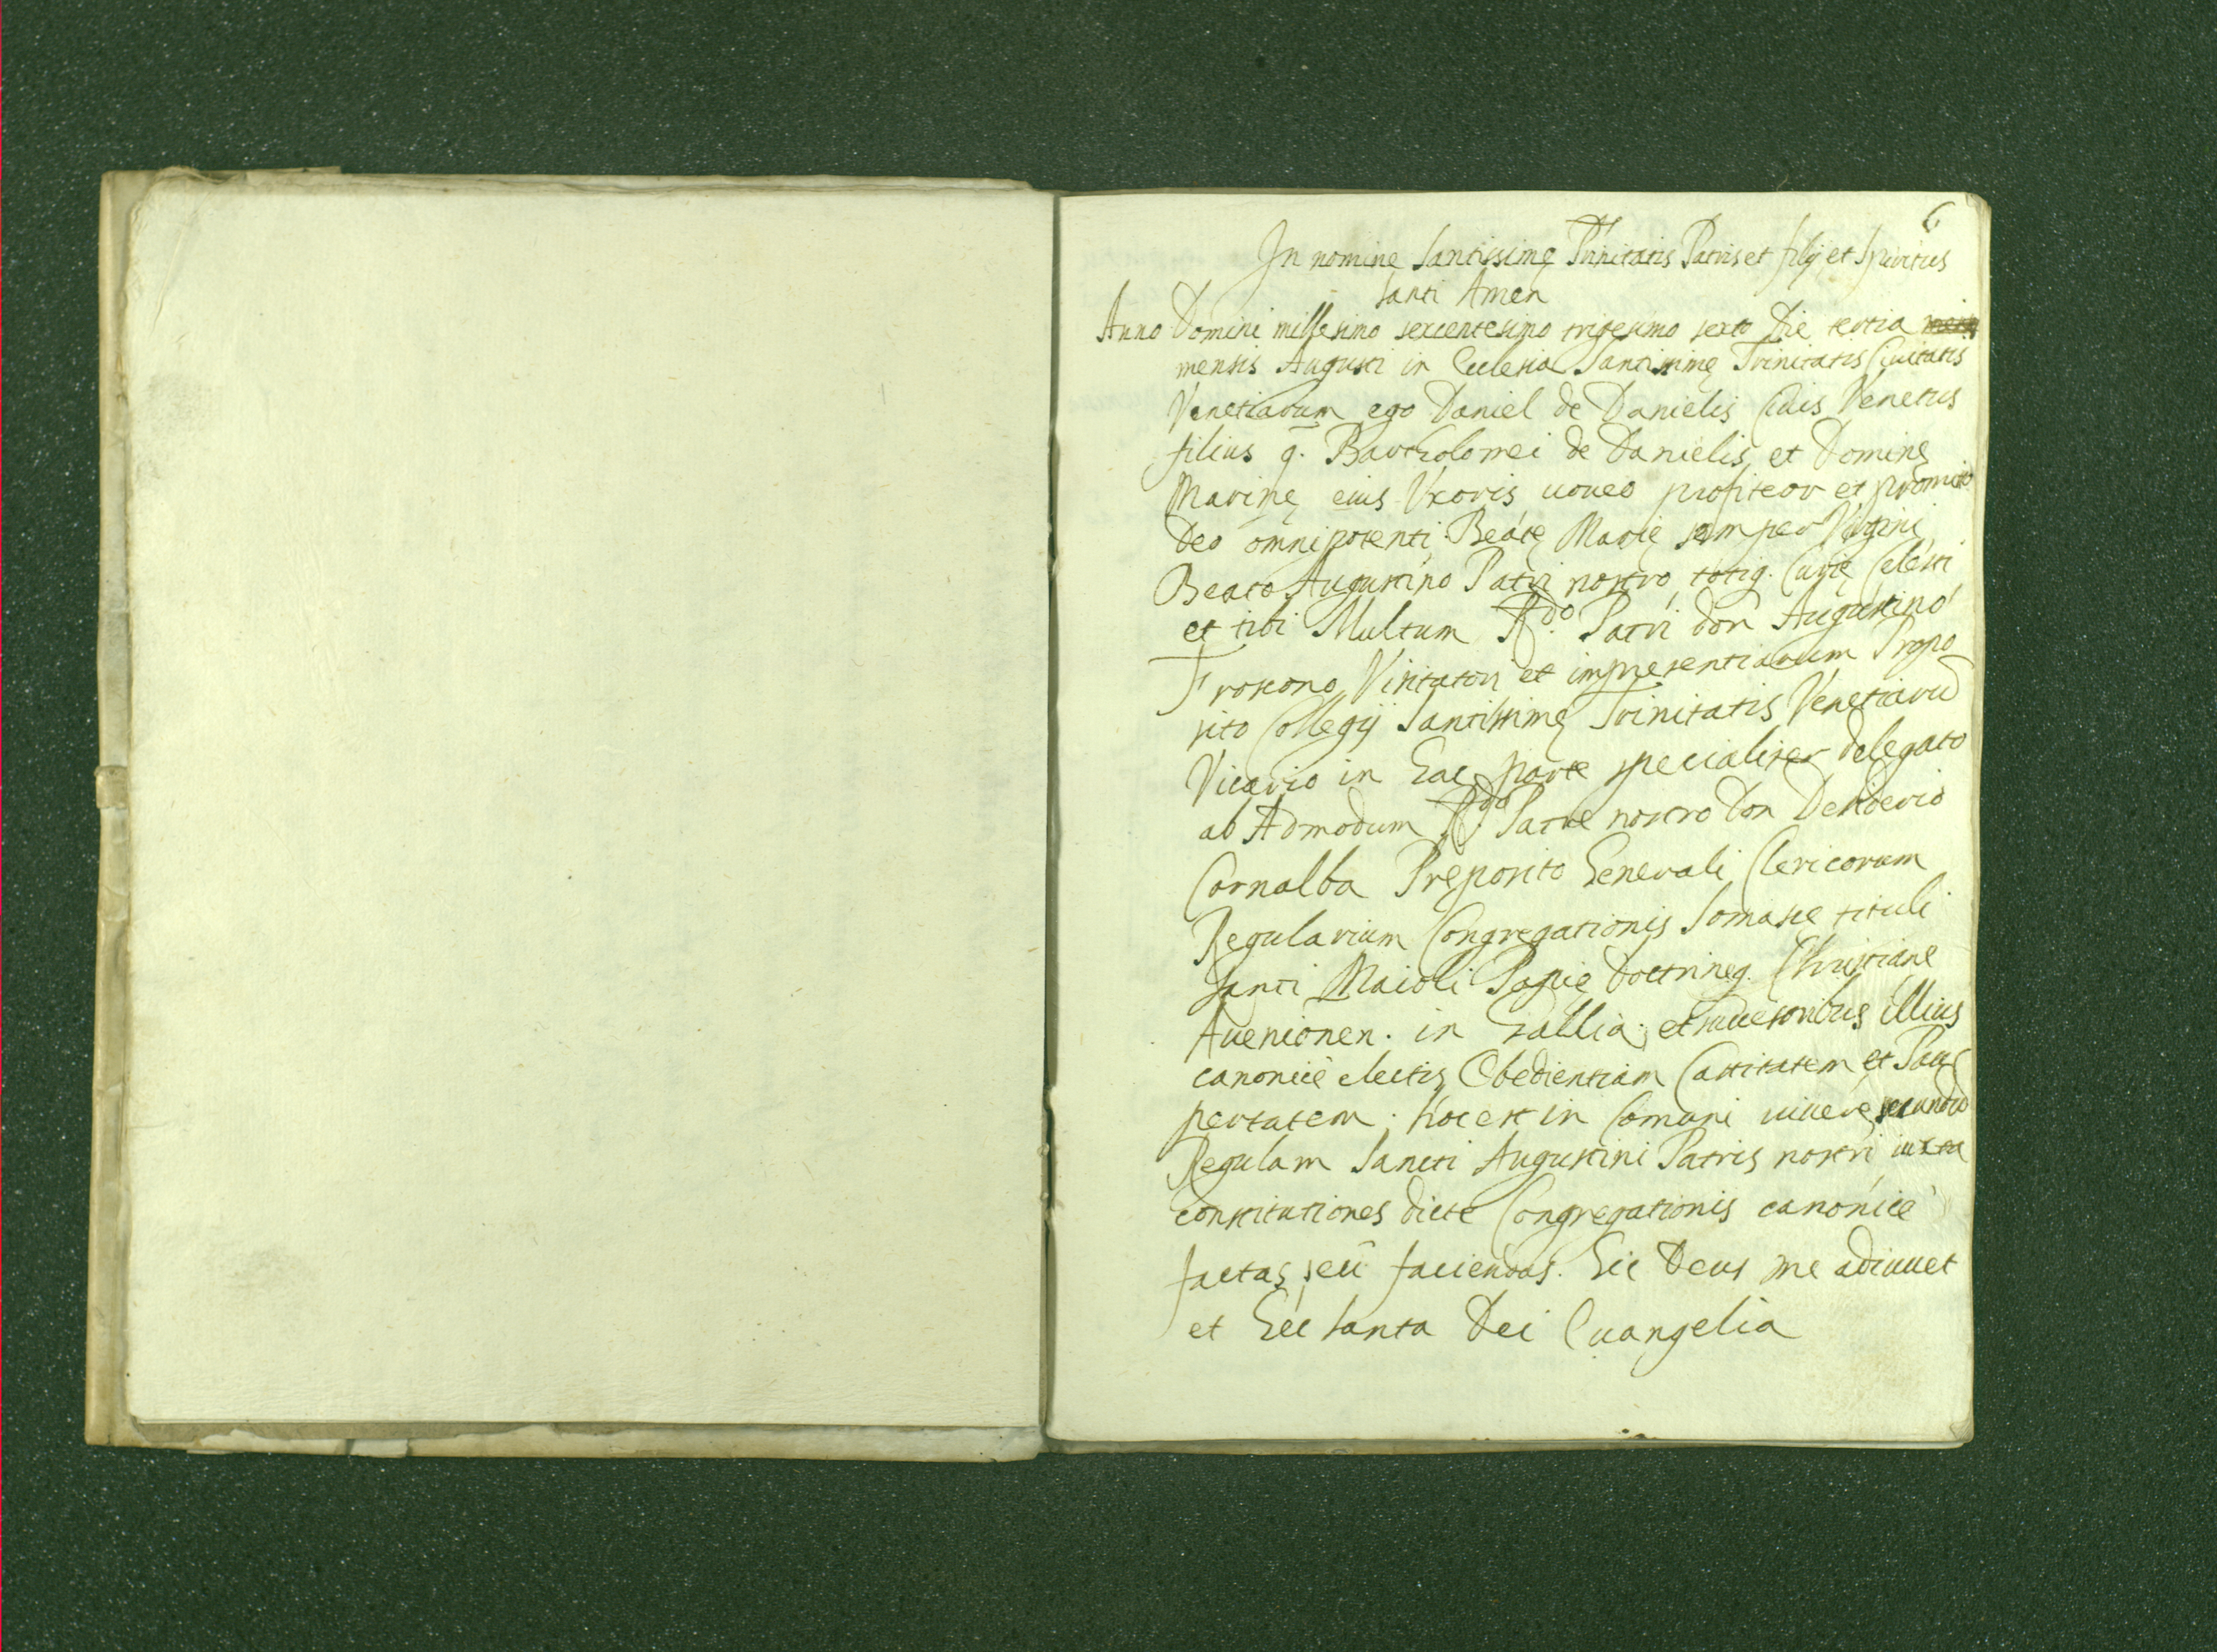 6
In nomine Santissimę Trinitatis Patris et filij et Spiritus
santi Amen
Anno Domini millesimo sexcentesimo trigesimo sexto Die tertia
mensis Augusti in Ecclesia Santissimę Trinitatis Ciuitatis
Venetiarum ego Daniel de Danielis Ciuis Venetus
filius q. Bartholomei de Danielis et Dominę
Marinę eius Vxoris uoueo profiteor et promitto
Deo omnipotenti Beatę Marię semper Virgini
Beato Augustino Patri nostro totiq. Curię Celesti
et tibi Multum R.do Patri don Augustino
Froscono Visitatori et impresentiarum Prepo
sito Collegij Santissimę Trinitatis Venetiarū
Vicario in hac parte specialiter delegato
ab Admodum R.do Patre nostro Don Desiderio
Cornalba Pręposito Generali Clericorum
Regularium Congregationis Somasce tituli
santi Maioli Papię Doctrineq. Christiane
Auenionen. in Gallia. et successoribus illius
canonicè electis Obedientiam Castitatem et Pau
pertatem. hoc est in Comuni uiuere secundū
Regulam Sancti Augustini Patris nostri iuxta
constitutiones dicte Congregationis canonicè
factas, seù faciendas. Sic Deus me adiuuet
et hec santa Dei Euangelia